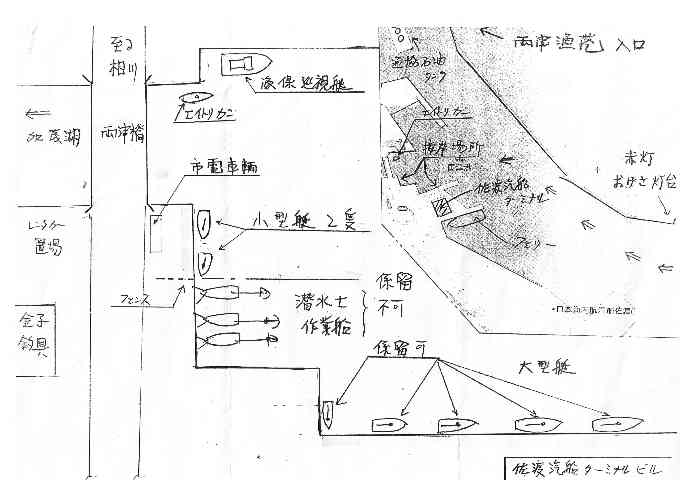 至る
相川
海保巡視艇
エイトリカニ
加茂湖
両津橋
市電車輌
小型艇 2隻
レンタカー
置場
フェンス
潜水士
作業船
係留
不可
金子
釣具
係留可
大型艇
佐渡汽船ターミナルビル
両津漁港 入口
石油
タンク
エイトリカニ
場所
佐渡汽船
ターミナル
フェリー
赤灯
おけさ灯台